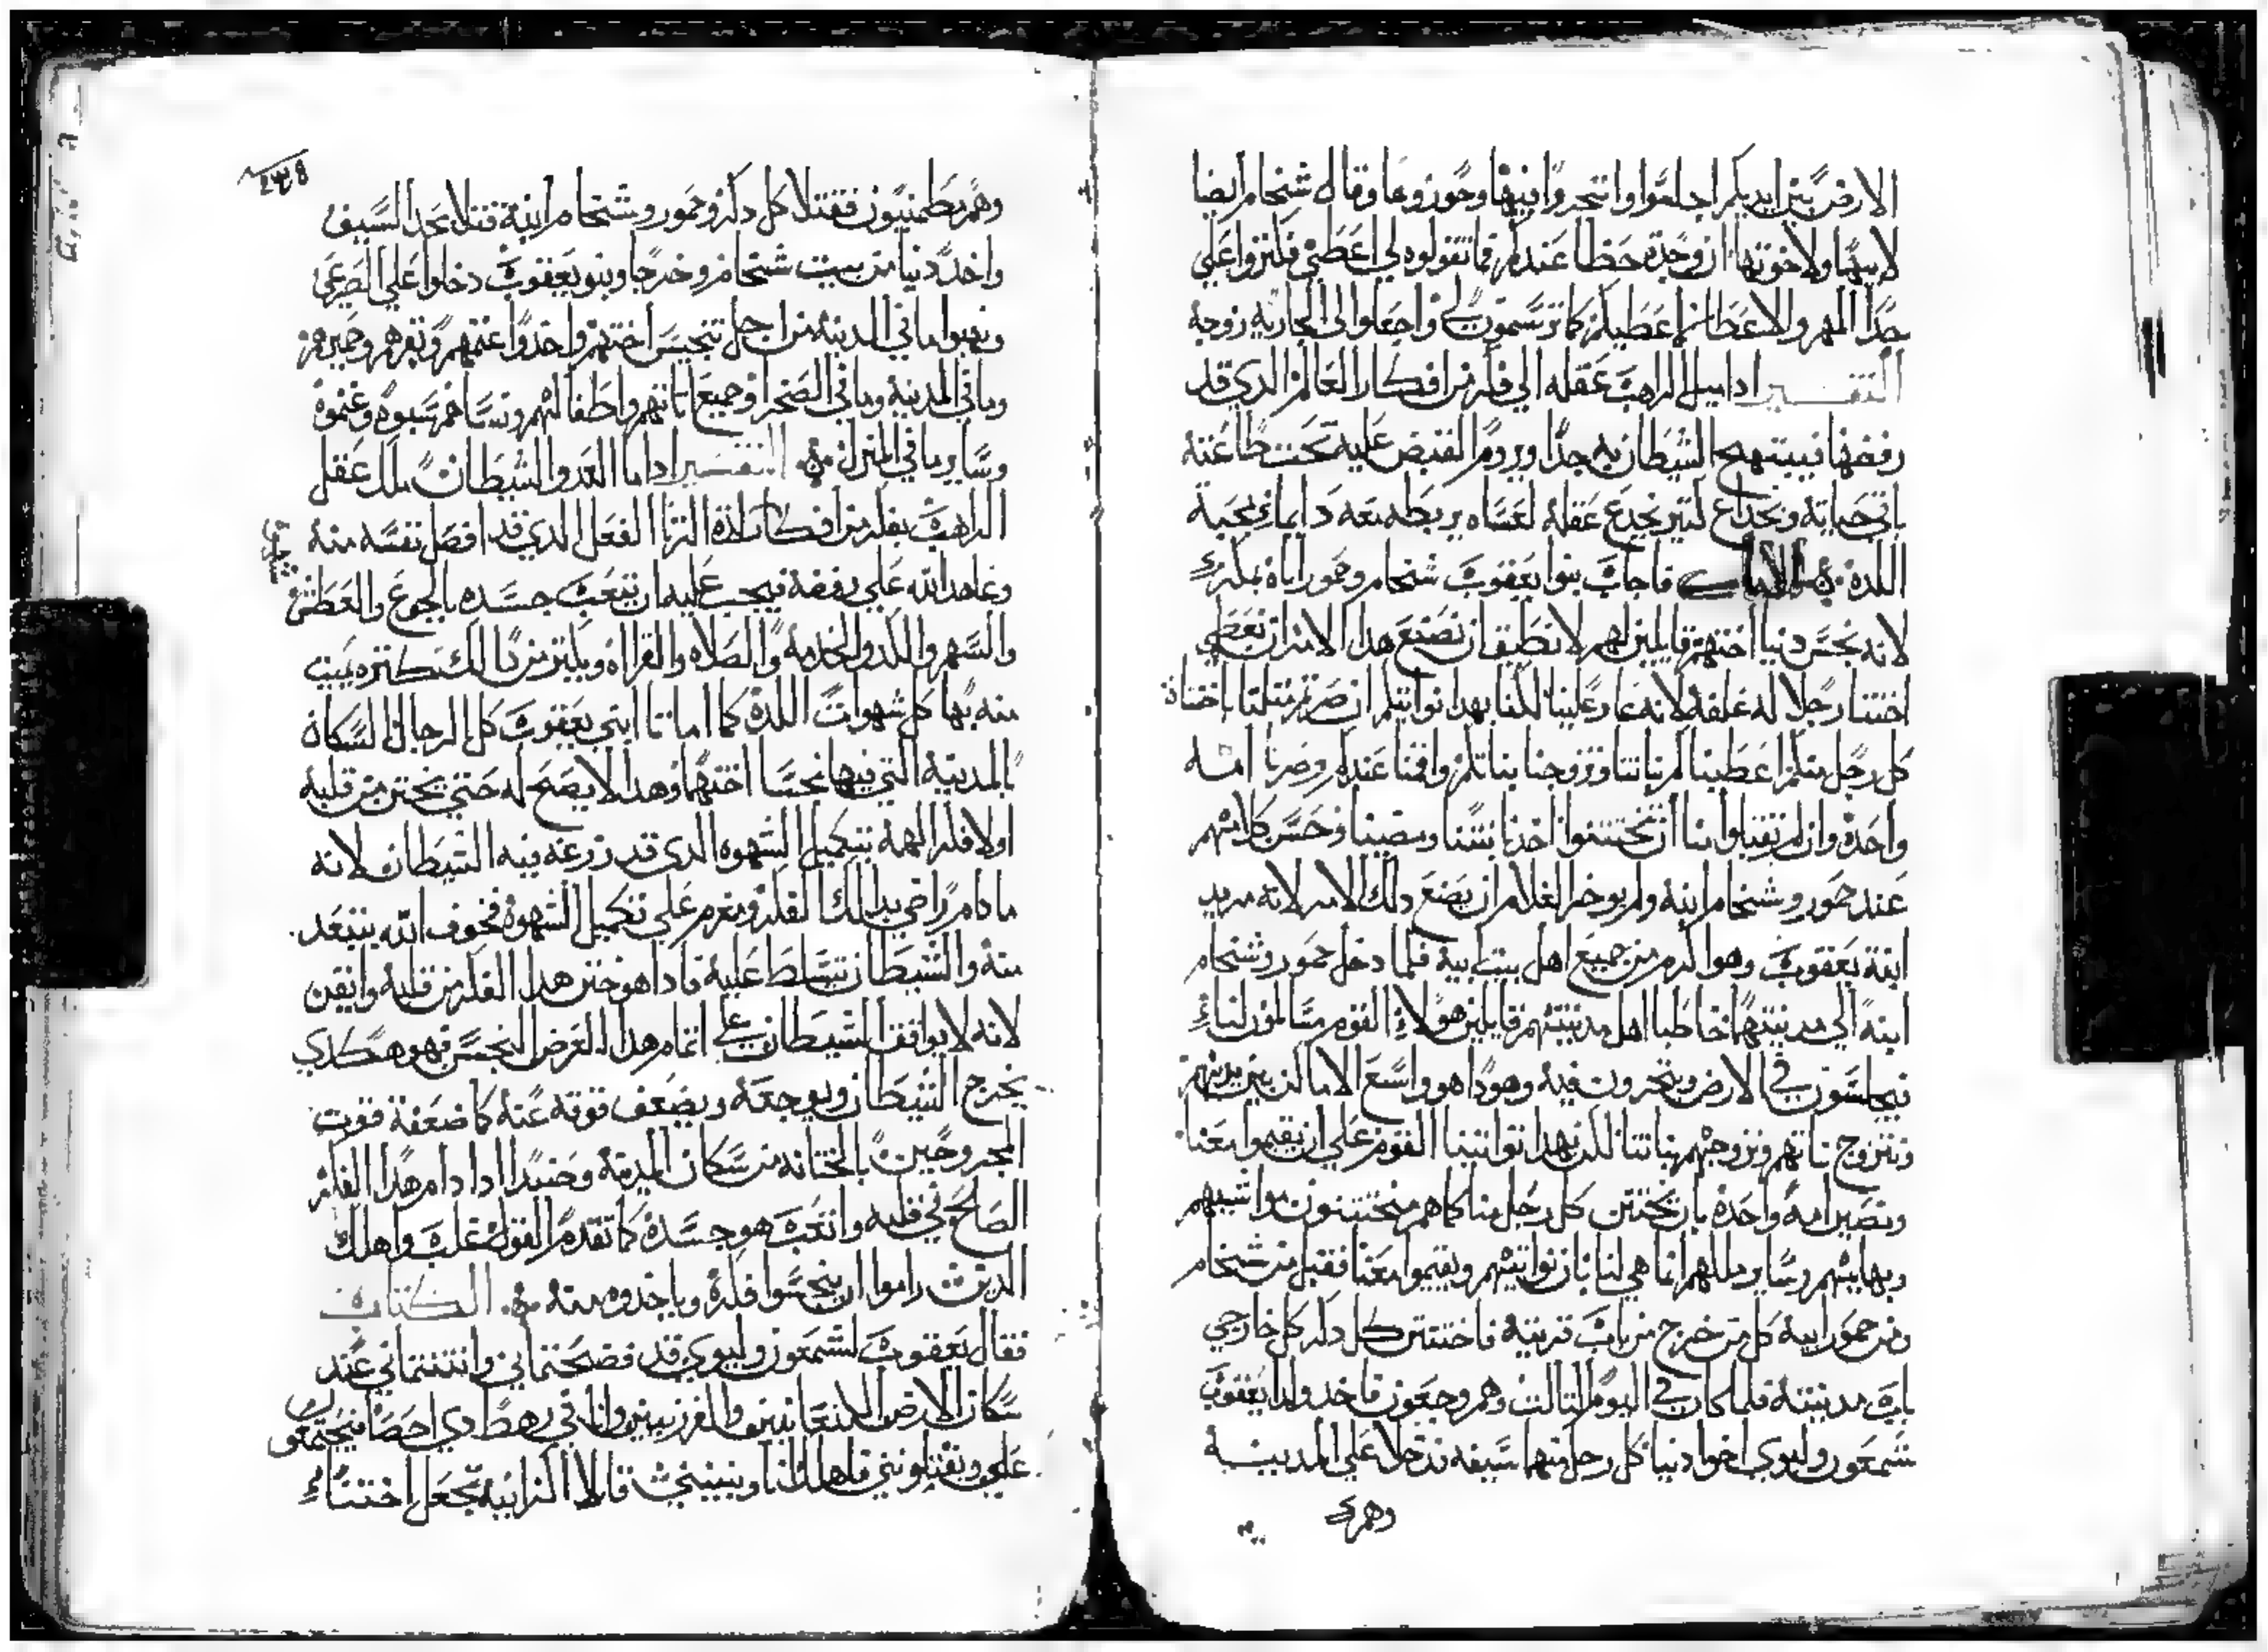 الارض بين ايديكم اجلسوا واتجروا فيها وحوزوها وقال شخام ايضا
لابيها ولاخوتها ان وجدت حظا عندكم فما تقولوه لي اعطي فكثروا علي
جدا المهر والاعطا اعطيكم كما ترسمون لي واجعلوا لي الجاريه زوجه
التفسير اذا ميل الراهب عقله الي فكر من افكار العالم الدي قد
رفضها فيبتهج الشيطان به جدا ويروم القبض عليه تحت طاعته
باقي حياته وبخداع كتير يخدع عقله لعساه يربطه معه دايما في محبة
اللدة الاصل فاجاب بنوا يعقوب شخام وحمور اباه بمكر
لانه نجس دنيا اختهم قايلين لهم لا نطيق ان نصنع هدا الامر ان نعطي
اختنا رجلا له غلفه لانه عار علينا لكنا بهدا نواتيكم ان صرتم متلنا باختتان
كل رجل منكم اعطينا لكم بناتنا وتزوجنا بناتكم واقمنا عندكم وصرنا امه
واحدة وان لم تقبلوا منا ان تختتنوا اخدنا بنتنا ومضينا وحسن كلامهم
عند حمور وشخام ابنه ولم يوخر الغلام ان يصنع دلك الامر لانه مريد
ابنة يعقوب وهو اكرم من جميع اهل بيت ابيه فلما دخل حمور وشخام
ابنه الي مدينتهما خاطبا اهل مدينتهم قايلين هولاء القوم مسالمون لنا
فيجلسون في الارض ويتجرون فيه وهودا هو واسع الاماكن بين يديهم
ونتزوج بناتهم ونزوجهم بناتنا لكن بهدا نواتينا القوم علي ان يقيموا معنا
ونصير امه واحدة بان يختتن كل رجل منا كما هم مختتنون مواشيهم
وبهايمهم وساير ملكهم انما هي لنا بان نواتيهم ويقيموا معنا فقبل من شخام
ومن حمور ابيه كل من خرج من باب قريته فاختتن كل دكر كل خارجي
باب مدينته فلما كان في اليوم التالت وهم وجعون فاخد ولدا يعقوب
شمعون وليوي اخوا دنيا كل رجل منهما سيفه ودخلا علي المدينه
وهم
وهم مطمنيون فقتلا كل دكر وحمور وشخام ابنه قتلا بحد السيف
واخد دنيا من بيت شخام وخرجا وبنو يعقوب دخلوا علي الصرعي
ونهبوا ما في المدينه من اجل تنجيس اختهم واخدوا غنمهم وبقرهم وحميرهم
وما في المدينه وما في الصحرا وجميع اتاتهم واطفالهم ونساهم سبوه وغنموه
وساير ما في المنزل التفسير اداما العدو الشيطان ملك عقل
الراهب بفكر من افكار لدة الزنا الفعل الدي قد افصل نفسه منه
وعاهد الله علي رفضه فيجب عليه ان يتعب جسده بالجوع والعطش
والسهر والكد والخدمه والصلاه والقراه ويكتر من دلك بكتره يميت
منه بها كل شهوات اللدة كما اماتا ابني يعقوب كل الرجال السكان
بالمدينه التي فيها نجسا اختها وهدا لا يصح له حتي يختن من قلبه
اولا فكر الهمة بتكميل الشهوه الدي قد زرعه فيه الشيطان لانه
ما دام راضي بدلك الفكر ومعزم علي تكميل الشهوة فخوف الله يبتعد
منه والشيطان يتسلط عليه فاداهو ختن هدا الفكر من قلبه وايقن
لانه لا يوافق الشيطان علي اتمام هدا الغرض النجس فهو هكدي
يخرج الشيطان ويوجعه ويضعف قوته عنه كما ضعفة قوت
المجروحين بالختانه من سكان المدينة وحينيدا ادا دام هدا الفكر
الصالح في قلبه واتعب هو جسده كما تقدم القول غلب واهلك
الدين راموا ان ينجسوا فكره وياخدوه منه الكتاب
فقال يعقوب لشمعون وليوي قد فضحتماني وانتنتماني عند
سكان الارض الكنعانيين والفرزيين وانا في رهط دي احصا فيجتمعون
علي ويقتلونني فاهلك انا وبيتي قالا اكزانيه تجعل اختنا